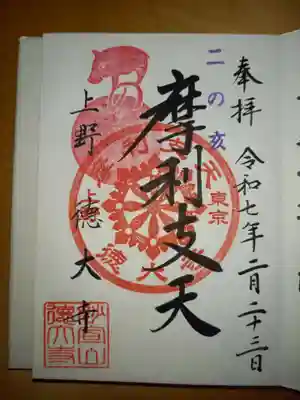 奉拝 令和七年二月二十三日
二の亥
摩利支天
上野 德大寺
東京
妙宣山
德大寺